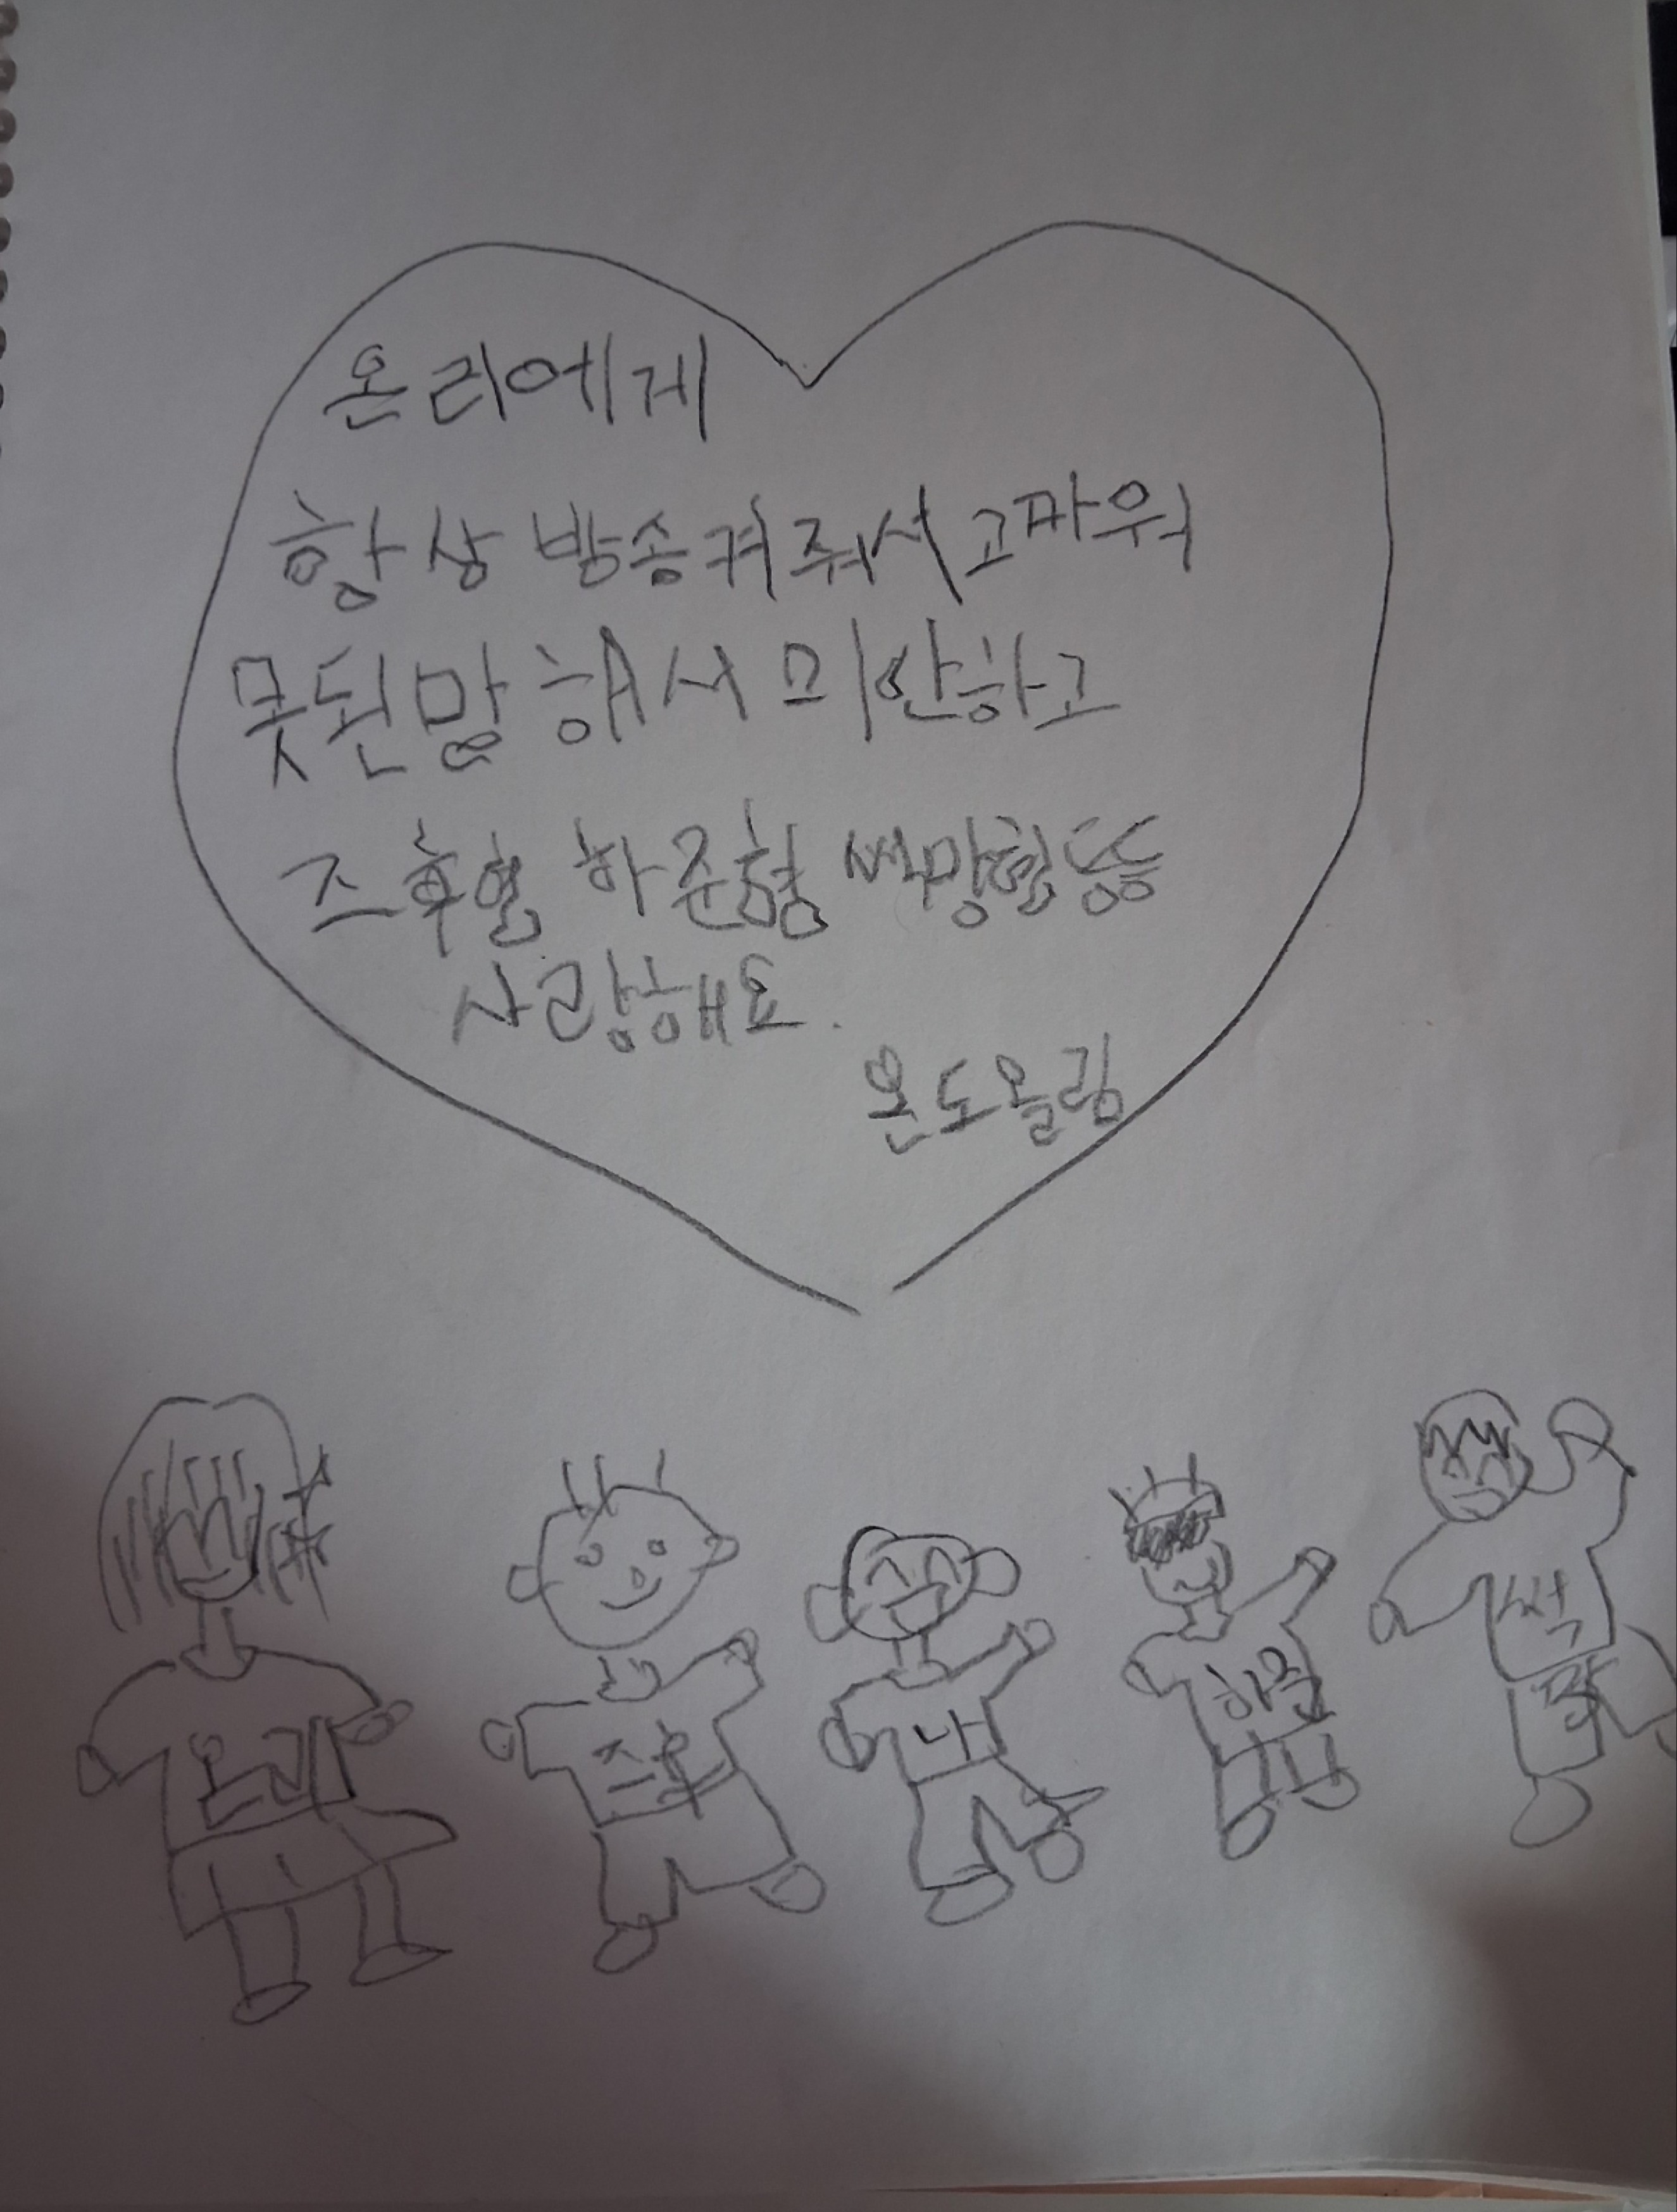 온리에게
항상 방송켜줘서 고마워
못된말 해서 미안하고
조후형 하준형 써망형 등등
사랑해요.
온도올림
온리
조후
나
하준
써